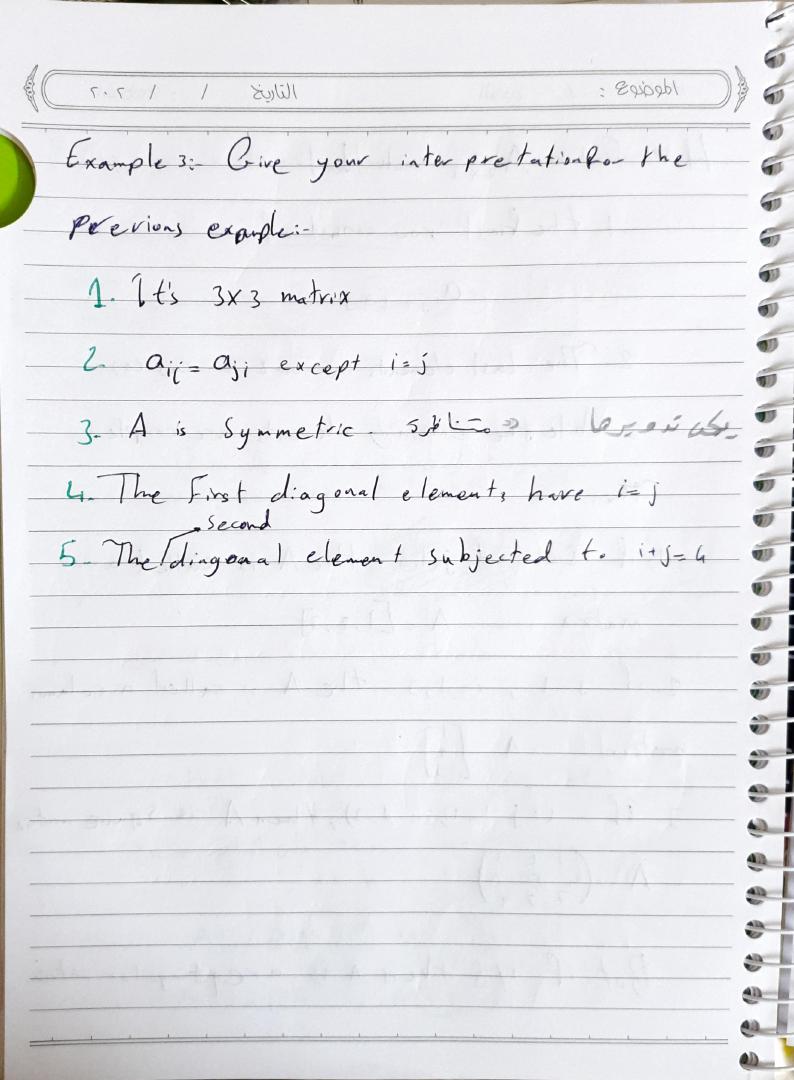 الموضوع :    التاريخ    /    /    ٢٠٢
Example 3:- Give your interpretation for the
previous example:-
1. It's 3x3 matrix
2. aij = aji except i=j
3. A is Symmetric. متناظرة يمكن تدويرها
4. The First diagonal elements have i=j
second
5. The diagonal element subjected to i+j=4